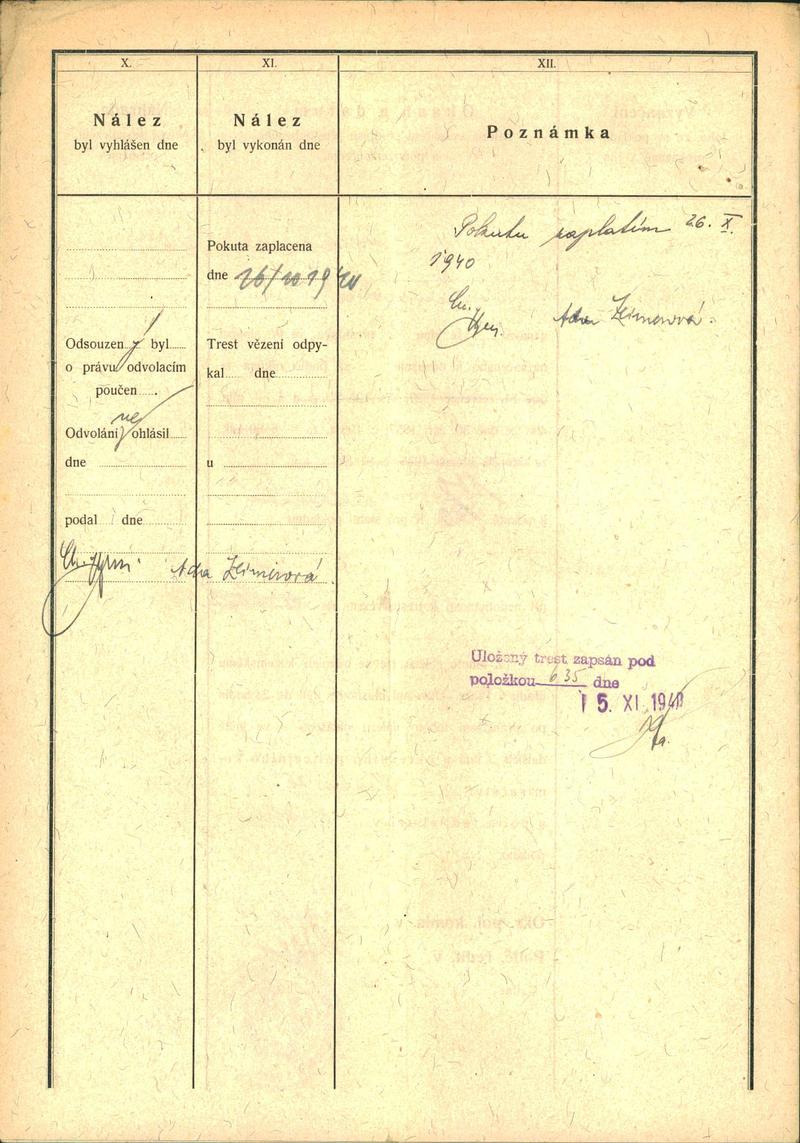 X.
Nález
byl vyhlášen dne
Odsouzen ý byl
o právu odvolacím
poučen .
ne
Odvolání ohlásil
dne
podal dne
XI.
Nález
byl vykonán dne
Pokuta zaplacena
dne 26/10 1940
Trest vězení odpy-
kal dne
u
XII.
Poznámka
Pokutu zaplatím 26. X.
1940
Uložený trest zapsán pod
položkou 635 dne
15. XI. 1940